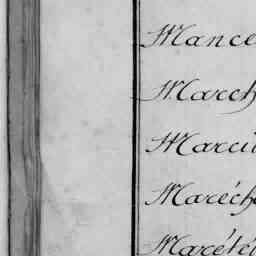 Mance
March
Marcu
Maréch
Marété